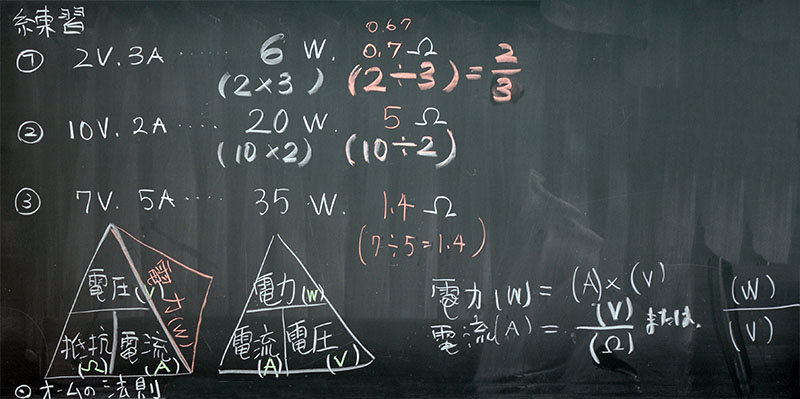 練習
① 2V. 3A ····· 6 W. 0.67 0.7 Ω
(2×3) (2÷3) = 2/3
② 10V. 2A ····· 20 W. 5 Ω
(10×2) (10÷2)
③ 7V. 5A ····· 35 W. 1.4 Ω
(7÷5=1.4)
電圧(V) 電力(W)
抵抗(Ω) 電流(A)
電力(W)
電流(A) 電圧(V)
電力(W) = (A)×(V)
電流(A) = (V)/(Ω) または (W)/(V)
◎オームの法則